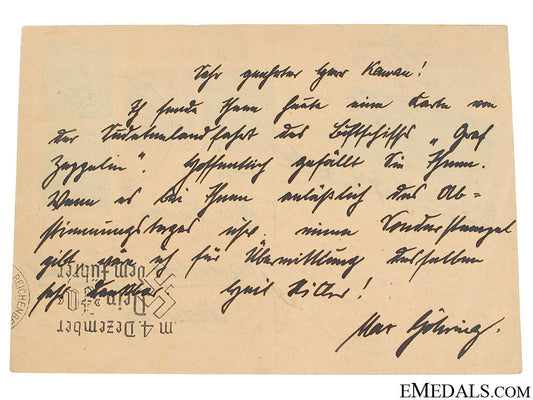 Sehr geehrter Herr Kawan!
Ich sende Ihnen heute eine Karte von
der Sudetenlandfahrt des Luftschiffs „Graf
Zeppelin“. Hoffentlich gefällt Sie Ihnen.
Wenn es bei Ihnen anläßlich des Ab=
stimmungstages usw. einen Sonderstempel
gibt wär ich für Übermittlung desselben
sehr dankbar. Heil Hitler!
Max Göhring.
m 4. Dezember
Dein „Ja“
dem Führer
REICHENB
EMEDALS.COM